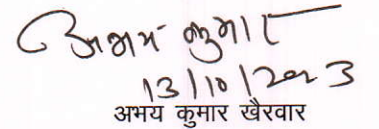 अभय कुमार
13/10/2023
अभय कुमार खैरवार